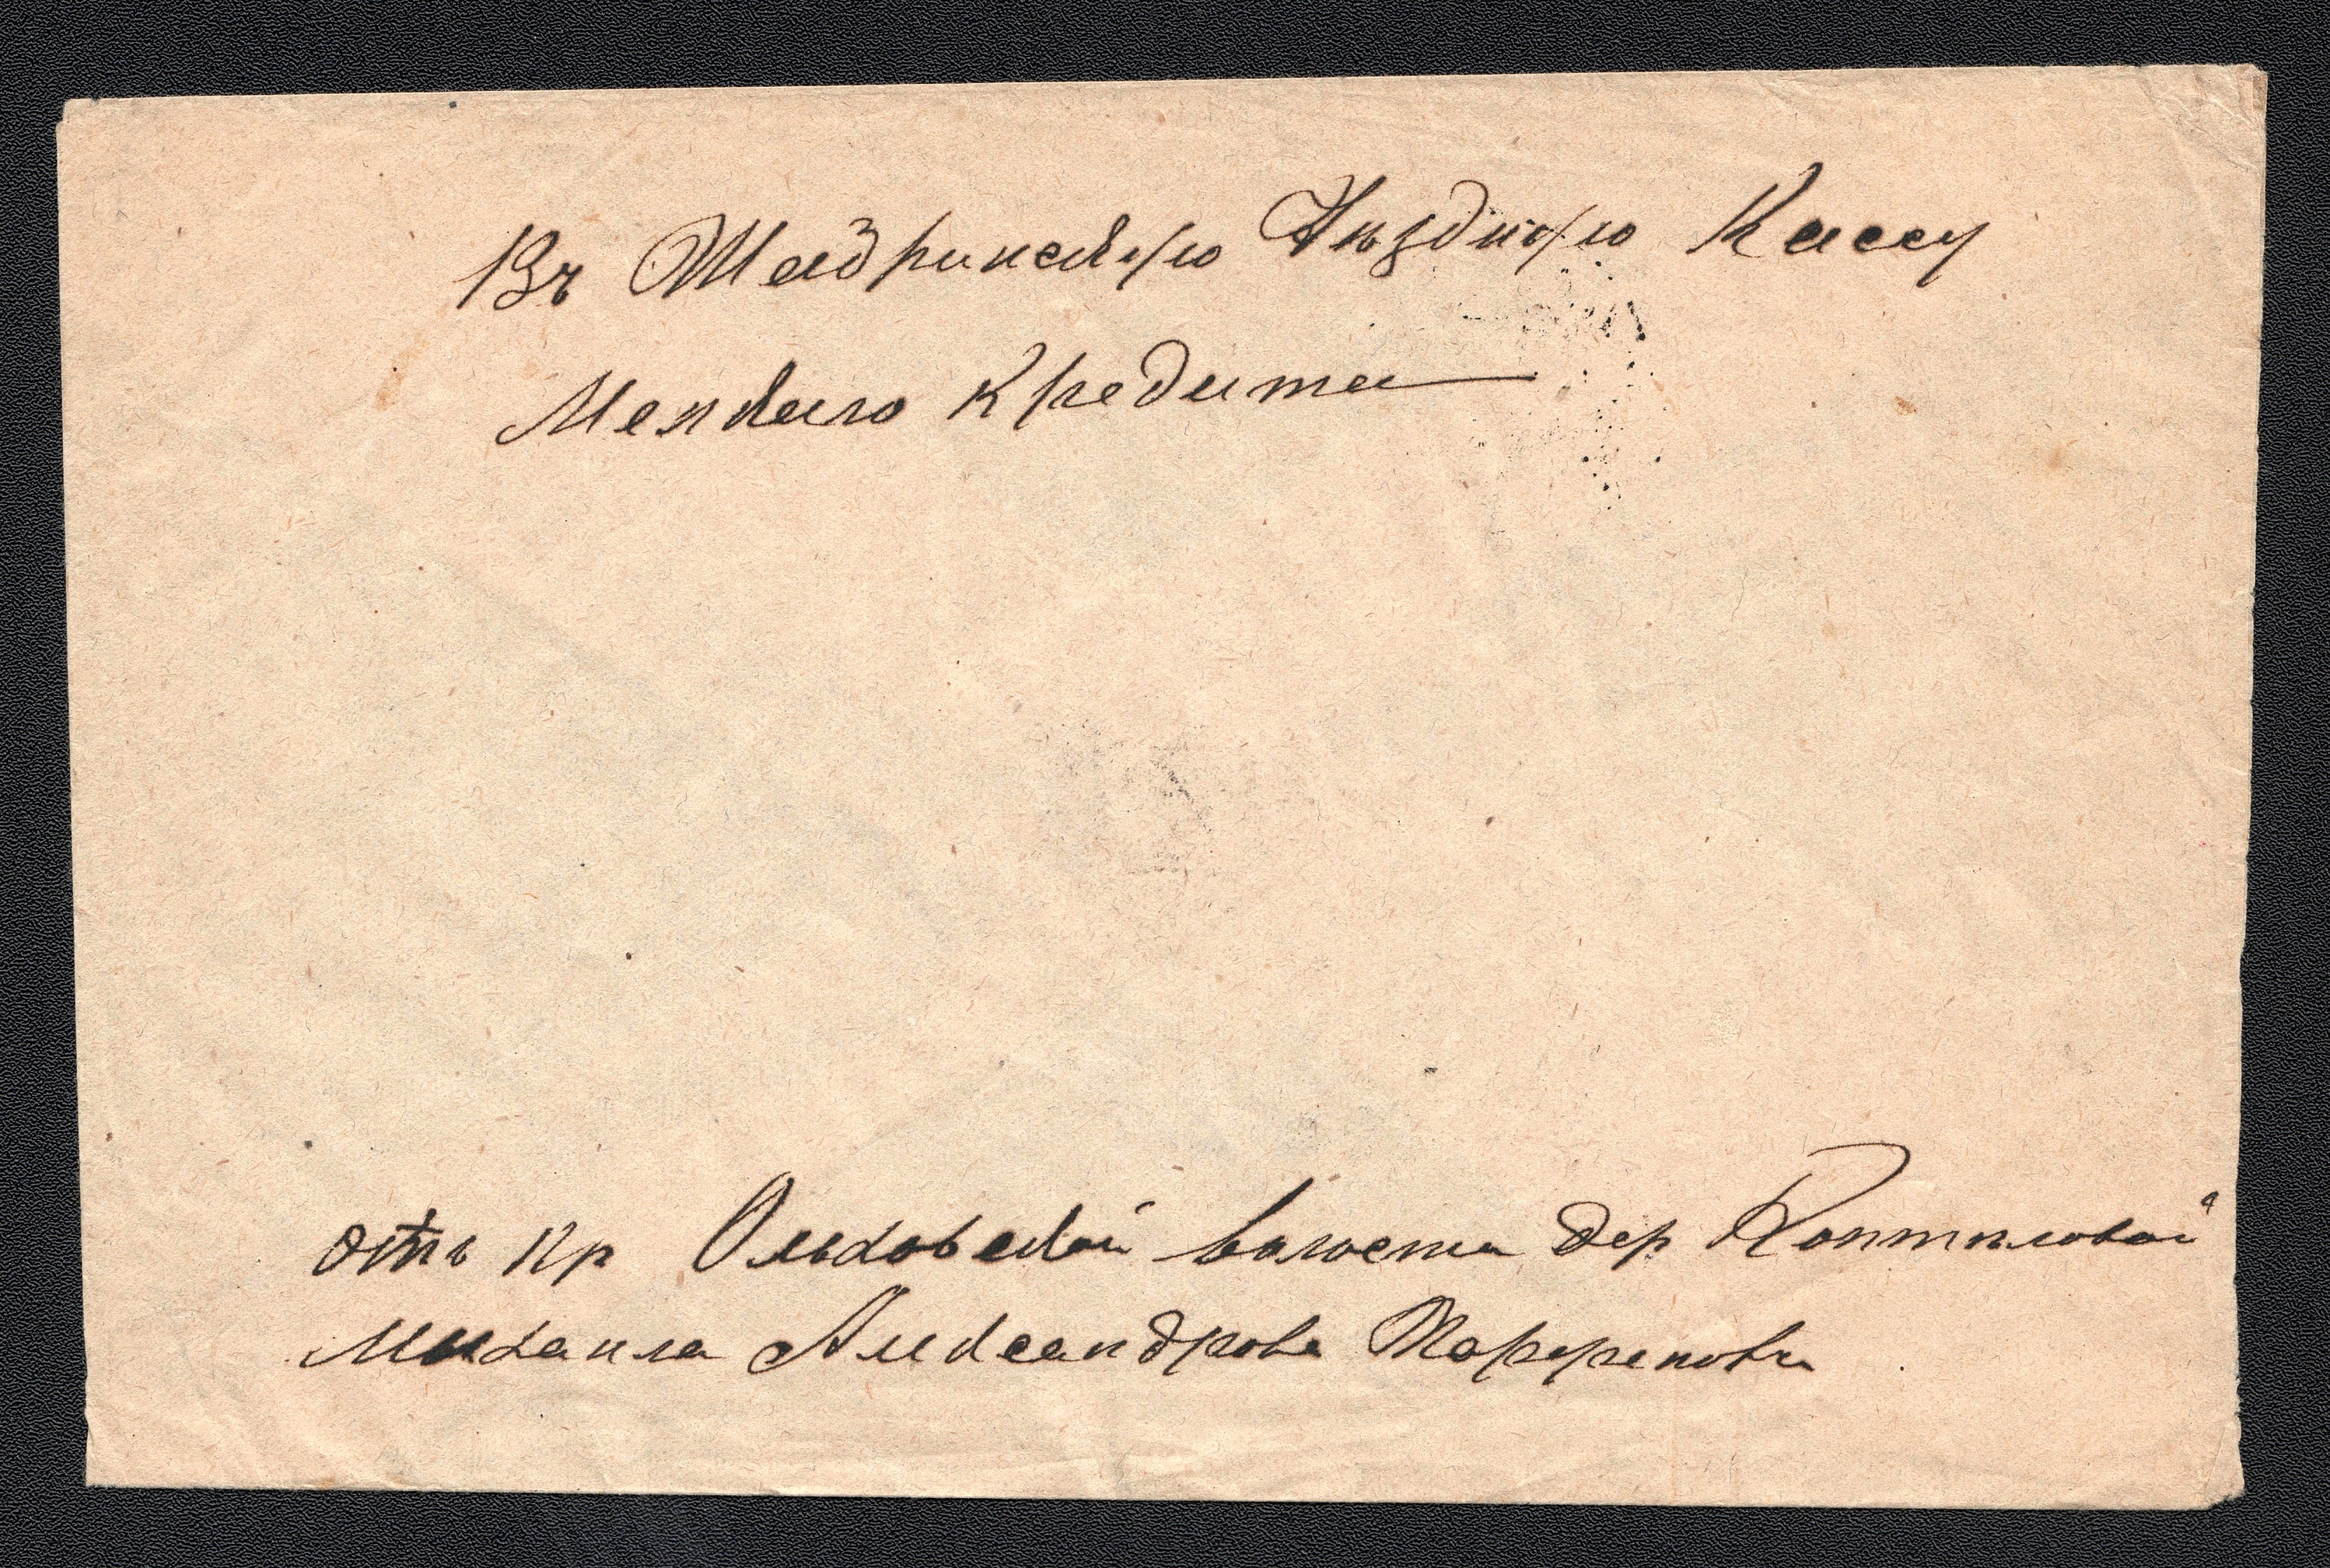 Въ Шадринскую Уѣздную Кассу
Мелкаго Кредита
отъ Кр Ольховской волости дер Коптѣловой
Михаила Александрова